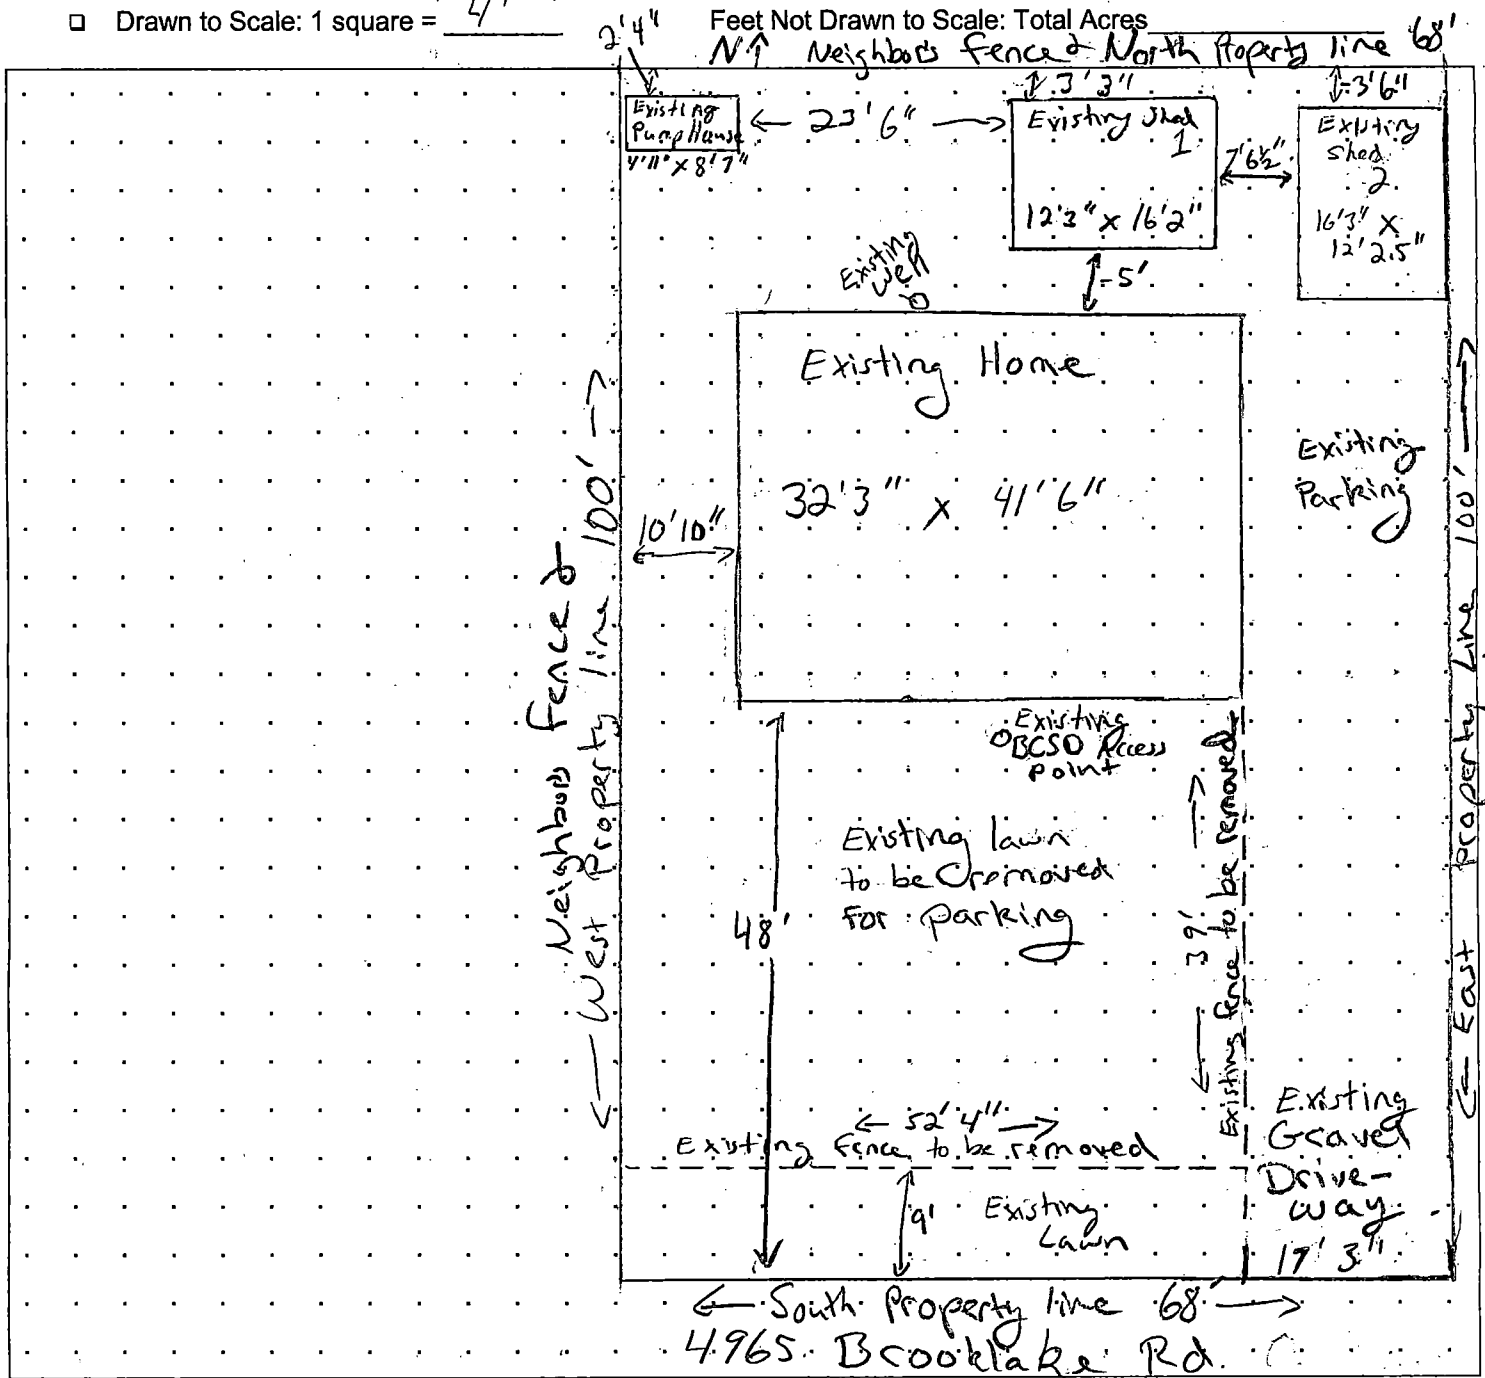 Drawn to Scale: 1 square = 4'
Feet Not Drawn to Scale: Total Acres
N↑ Neighbors fence & North Property line 68'
2'4"
3'3"
-3'6"
Existing
Pump House
4'11" x 8'7"
← 23'6" →
Existing Shed
1
12'3" x 16'2"
7'6½"
Existing
Shed
2
16'3" x
12'2.5"
Existing
Well
-5'
Existing Home
32'3" x 41'6"
10'10"
Existing
Parking
Neighbors fence &
← West Property line 100' →
← East Property Line 100' →
Existing
BCSD Access
point
Existing lawn
to be removed
for parking
48'
← 39' →
Existing fence to be removed
← 52'4" →
Existing fence to be removed
9'
Existing
Lawn
Existing
Gravel
Drive-
way
17'3"
← South Property line 68' →
4965 Brooklake Rd.